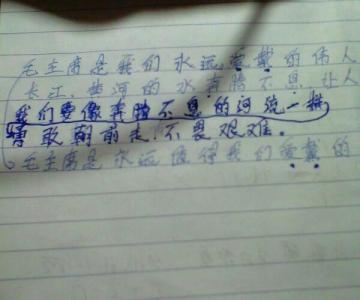 毛主席是我们永远爱戴的伟人
长江、黄河的水奔腾不息,让人
我们要像奔腾不息的河流一样
勇敢朝前走,不畏艰难。
毛主席是永远值得我们爱戴的